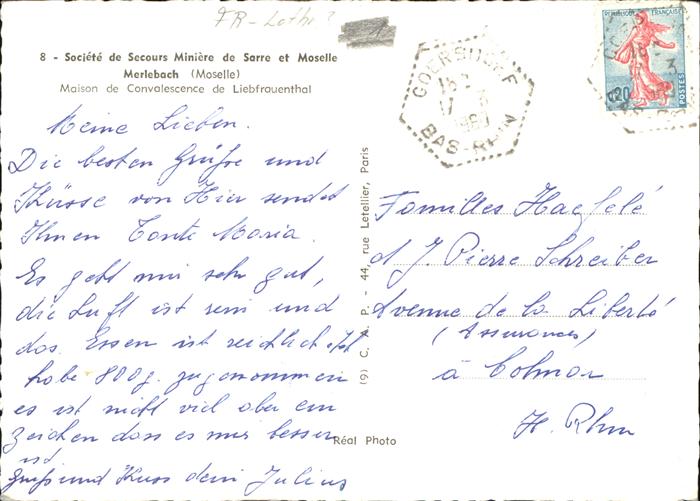 FR - Lothr?
8 - Société de Secours Minière de Sarre et Moselle
Merlebach (Moselle)
Maison de Convalescence de Liebfrauenthal
Meine Lieben.
Die besten Grüße und
Küsse von Hier sendet
Ihnen Tante Maria.
Es geht mir sehr gut,
die Luft ist rein und
das Essen ist reichlich
habe 800g. zugenommen
es ist nicht viel aber ein
zeichen dass es mir besser
ist
Gruß und Kuss dein Julius
(9) C. A. P. - 44, rue Letellier, Paris
Réal Photo
GOERSDORF
18
17 - 3
1960
BAS-RHIN
REPUBLIQUE FRANÇAISE
0,20
POSTES
Familles Haefelé
et J. Pierre Schreiber
Avenue de la Liberté
(Assurances)
à Colmar
H. Rhin